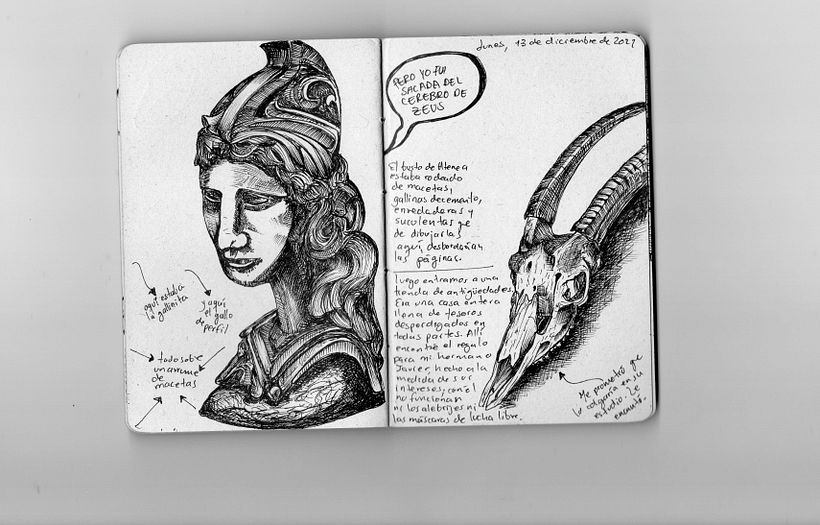 aquí estaba
la gallinita
y aquí
el gallo
de perfil
todo sobre
un arrume
de
macetas
lunes, 13 de diciembre de 2021
PERO YO FUI
SACADA DEL
CEREBRO DE
ZEUS
El busto de Atenea
estaba rodeado
de macetas,
gallinas de cemento,
enredaderas y
suculentas que
de dibujarlas
aquí, desbordarían
las páginas.
Luego entramos a una
tienda de antigüedades.
Era una casa entera
llena de tesoros
desperdigados en
todas partes. Allí
encontré el regalo
para mi hermano
Javier, hecho a la
medida de sus
intereses, con él
no funcionan
ni los alebrijes ni
las máscaras de lucha libre.
Me prometió que
lo colgaría en su
estudio. Le
encantó.